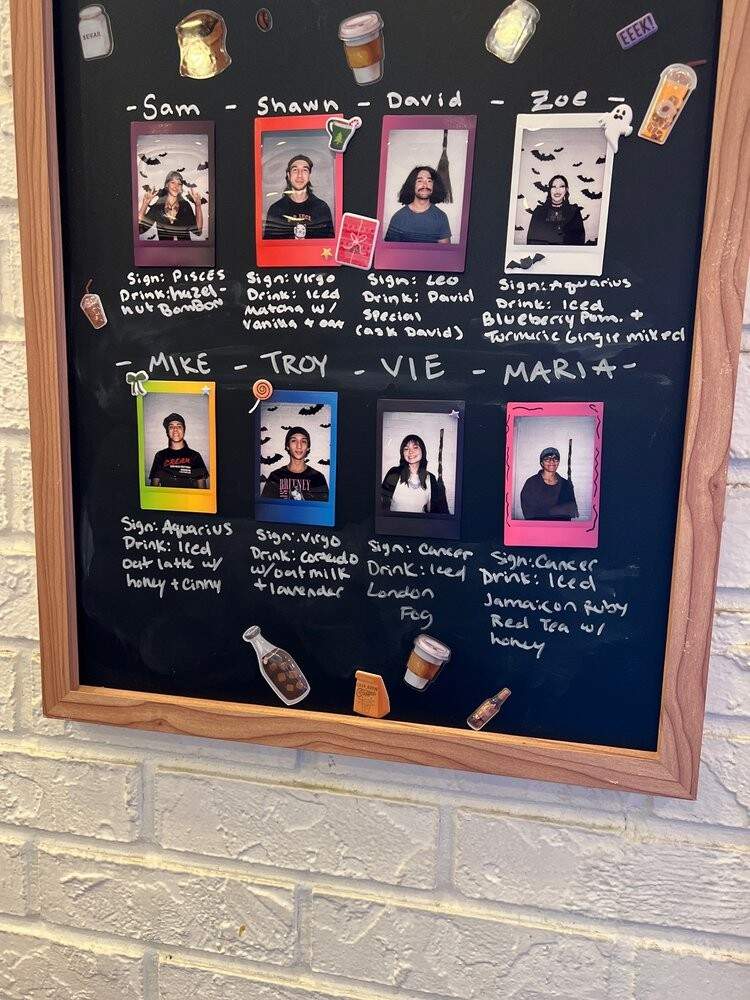 SUGAR
EEEK!
-Sam - Shawn - David - Zoe -
Sign: Pisces
Drink: hazel-
nut BonBon
Sign: Virgo
Drink: Iced
Matcha w/
Vanilla + oat
Sign: Leo
Drink: David
Special
(ask David)
Sign: Aquarius
Drink: Iced
Blueberry Pom. +
Turmeric Ginger mixed
- MIKE - TROY - VIE - MARIA -
CREAM
BRITNEY
Sign: Aquarius
Drink: Iced
oat latte w/
honey + cinny
Sign: Virgo
Drink: cortado
w/ oat milk
+ lavender
Sign: Cancer
Drink: Iced
London
Fog
Sign: Cancer
Drink: Iced
Jamaican Ruby
Red Tea w/
honey